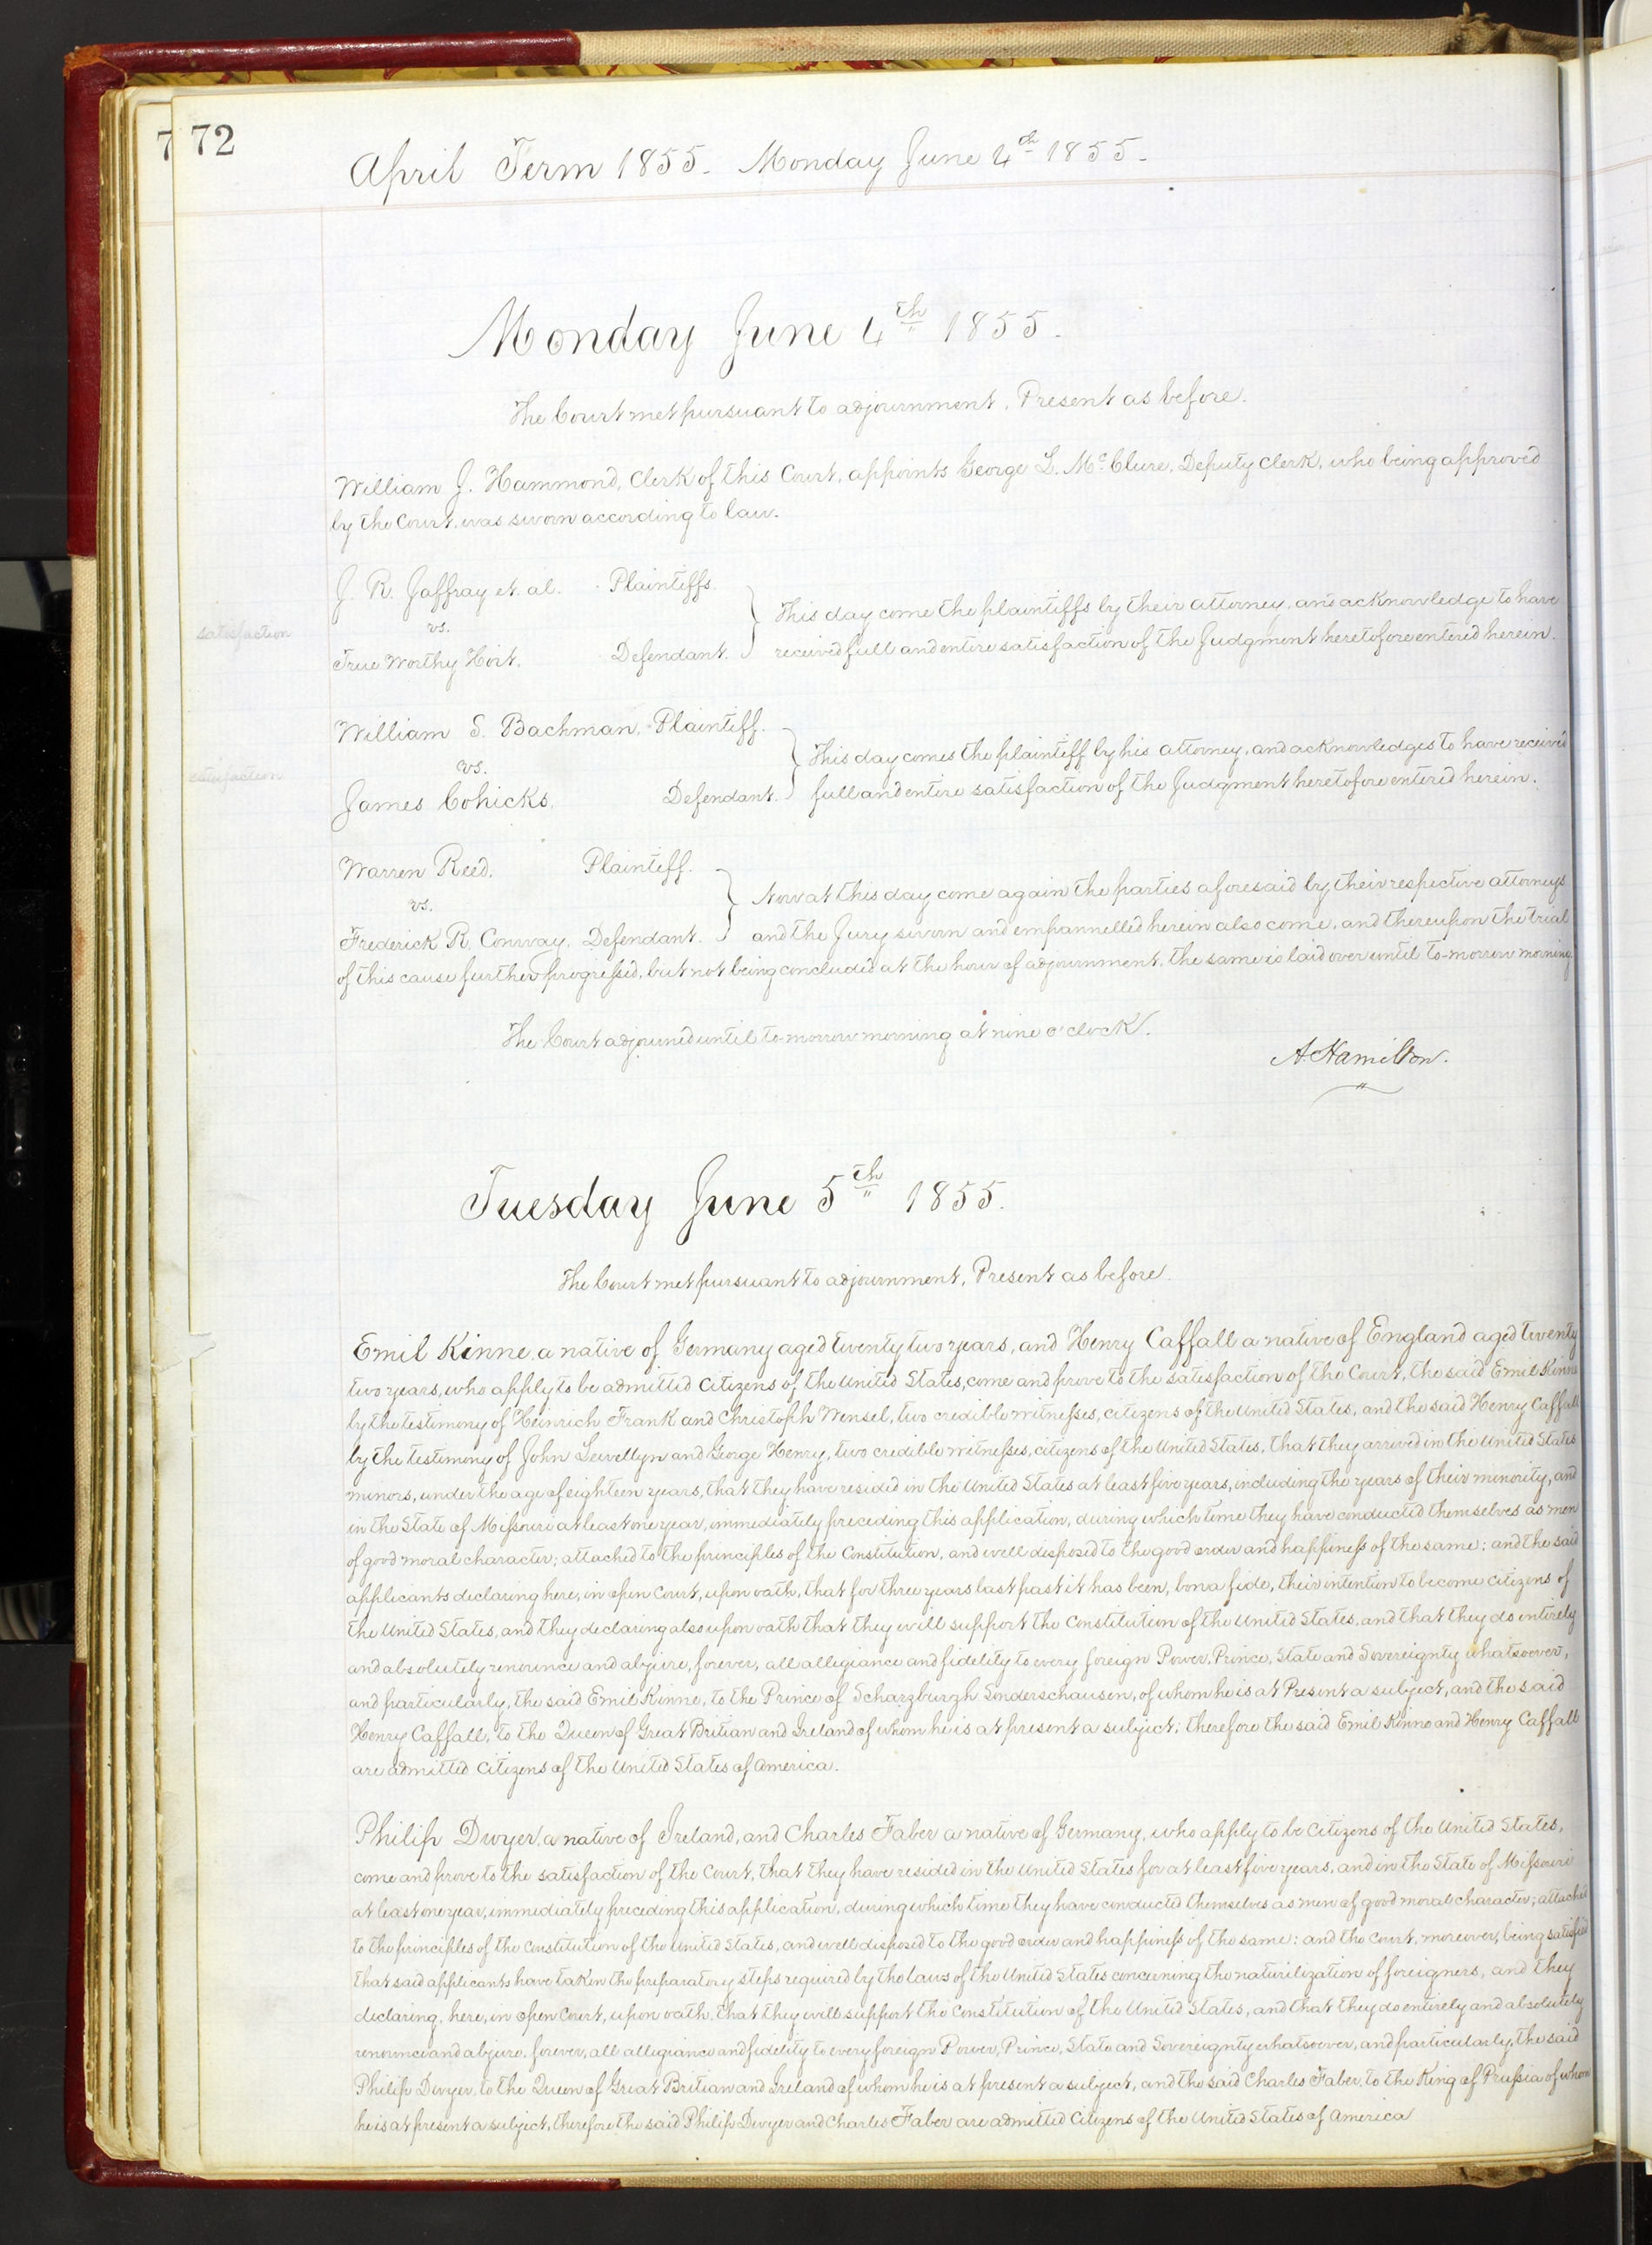 7 72
April Term 1855. Monday June 4th 1855.
Monday June 4th 1855.
The Court met pursuant to adjournment. Present as before.
William J. Hammond, Clerk of this Court, appoints George L. McClure, Deputy Clerk, who being approved
by the Court, was sworn according to law.
J. R. Jaffray et. al. Plaintiffs.
satisfaction
vs.
True Worthy Hoit, Defendant.
This day come the plaintiffs by their attorney, and acknowledge to have
received full and entire satisfaction of the Judgment heretofore entered herein.
William S. Bachman, Plaintiff.
satisfaction
vs.
James Cohicks, Defendant.
This day comes the plaintiff by his attorney, and acknowledges to have received
full and entire satisfaction of the Judgment heretofore entered herein.
Warren Reed, Plaintiff.
vs.
Frederick R. Conway, Defendant.
Now at this day come again the parties aforesaid by their respective attorneys
and the Jury sworn and empannelled herein also come, and thereupon the trial
of this cause further progressed, but not being concluded at the hour of adjournment, the same is laid over until to-morrow morning.
The Court adjourned until to-morrow morning at nine o'clock.
A. Hamilton.
Tuesday June 5th 1855.
The Court met pursuant to adjournment, Present as before.
Emil Kinne, a native of Germany aged twenty two years, and Henry Caffall a native of England aged twenty
two years, who apply to be admitted Citizens of the United States, come and prove to the satisfaction of the Court, the said Emil Kinne
by the testimony of Heinrich Frank and Christoph Wensel, two credible witnesses, citizens of the United States, and the said Henry Caffall
by the testimony of John Lewellyn and George Henry, two credible witnesses, citizens of the United States, that they arrived in the United States
minors, under the age of eighteen years, that they have resided in the United States at least five years, including the years of their minority, and
in the State of Missouri at least one year, immediately preceding this application, during which time they have conducted themselves as men
of good moral character; attached to the principles of the Constitution, and well disposed to the good order and happiness of the same; and the said
applicants declaring here, in open Court, upon oath, that for three years last past it has been, bona fide, their intention to become citizens of
the United States, and they declaring also upon oath that they will support the Constitution of the United States, and that they do entirely
and absolutely renounce and abjure, forever, all allegiance and fidelity to every foreign Power, Prince, State and Sovereignty whatsoever,
and particularly, the said Emil Kinne, to the Prince of Scharzburgh Sonderschausen, of whom he is at Present a subject, and the said
Henry Caffall, to the Queen of Great Britian and Ireland of whom he is at present a subject; therefore the said Emil Kinne and Henry Caffall
are admitted Citizens of the United States of America.
Philip Dwyer, a native of Ireland, and Charles Faber a native of Germany, who apply to be Citizens of the United States,
come and prove to the satisfaction of the Court, that they have resided in the United States for at least five years, and in the State of Missouri
at least one year, immediately preceding this application, during which time they have conducted themselves as men of good moral character; attached
to the principles of the Constitution of the United States, and well disposed to the good order and happiness of the same: and the Court, moreover, being satisfied
that said applicants have taken the preparatory steps required by the laws of the United States concerning the naturilization of foreigners, and they
declaring, here, in open Court, upon oath, that they will support the Constitution of the United States, and that they do entirely and absolutely
renounce and abjure, forever, all allegiance and fidelity to every foreign Power, Prince, State and Sovereignty whatsoever, and particularly, the said
Philip Dwyer, to the Queen of Great Britian and Ireland of whom he is at present a subject, and the said Charles Faber, to the King of Prussia of whom
he is at present a subject, therefore the said Philip Dwyer and Charles Faber are admitted Citizens of the United States of America